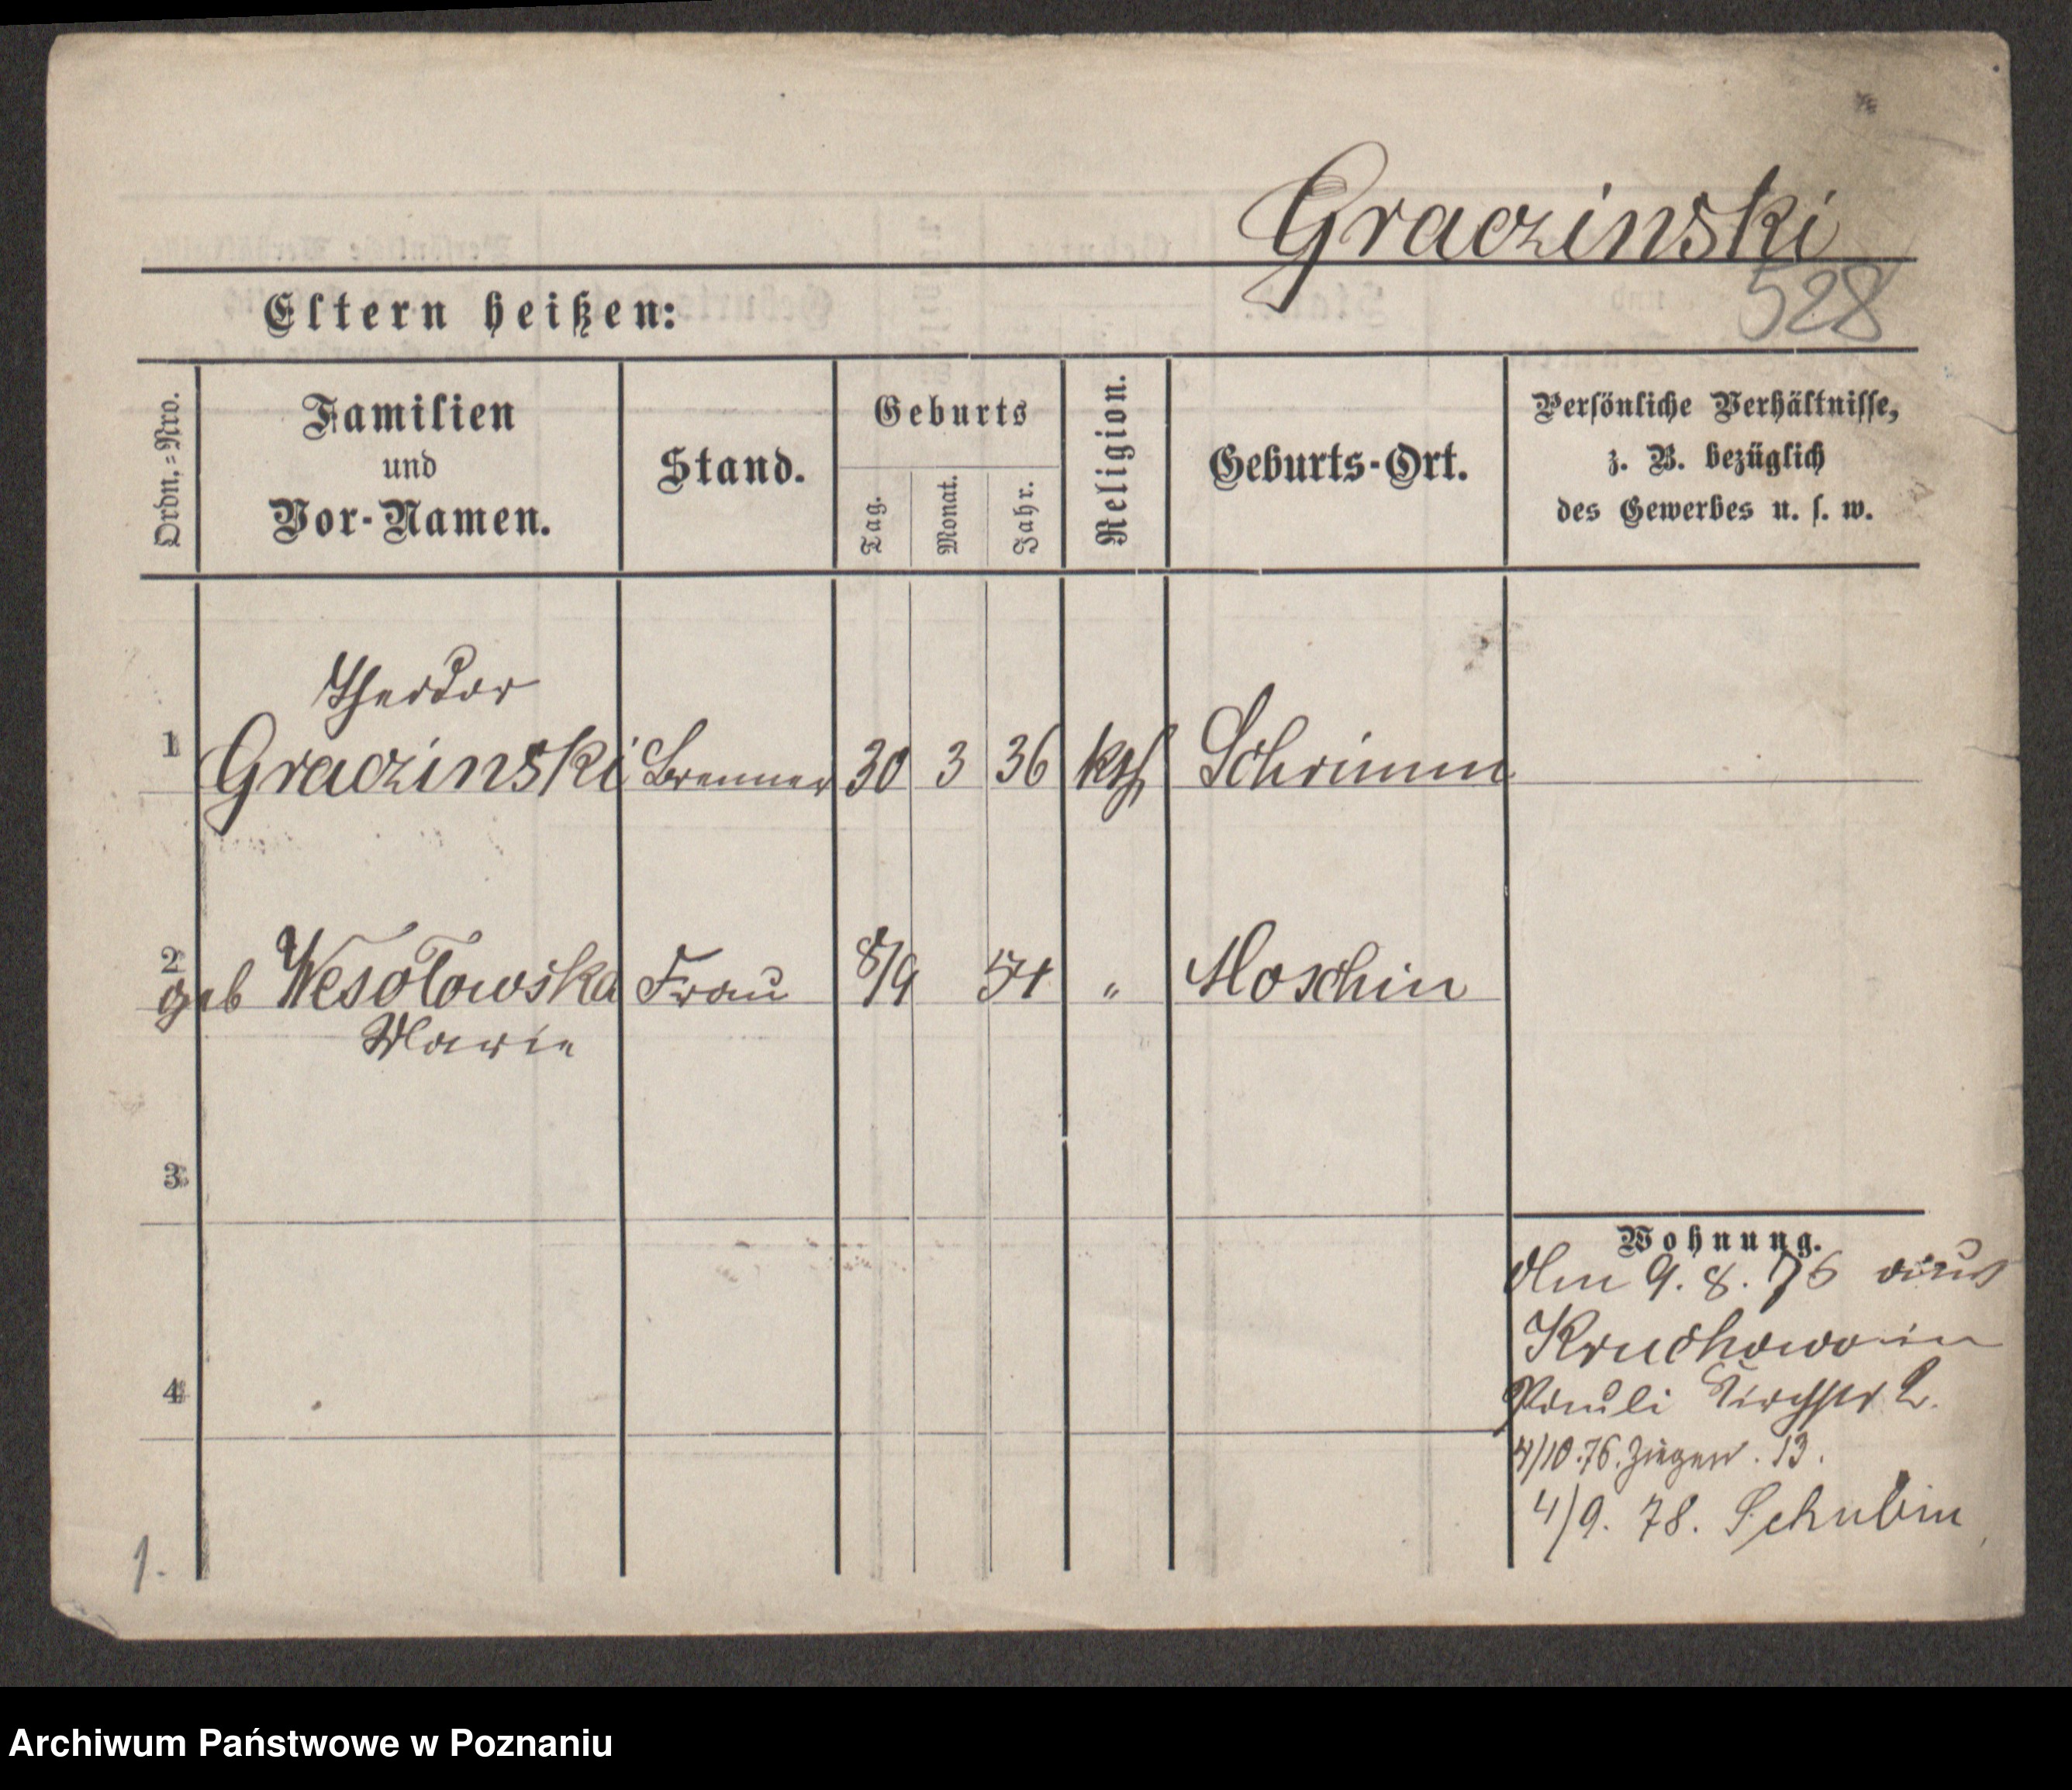 Graczinski
528
Eltern heißen:
Ordn.=Nro.
Familien
und
Vor-Namen.
Stand.
Geburts
Tag.
Monat.
Jahr.
Religion.
Geburts-Ort.
Persönliche Verhältnisse,
z. B. bezüglich
des Gewerbes u. s. w.
Theodor
1 Graczinski Brenner 30 3 36 kth Schrimm
2
geb Wesołowska Frau 8/9 54 " Moschin
Marie
3
4
Wohnung.
Am 9. 8. 76 aus
Kruchowo in
Pauli Kirchstr 2.
4/10.76. Ziegen . 13.
4/9. 78. Schubin
1.
Archiwum Państwowe w Poznaniu